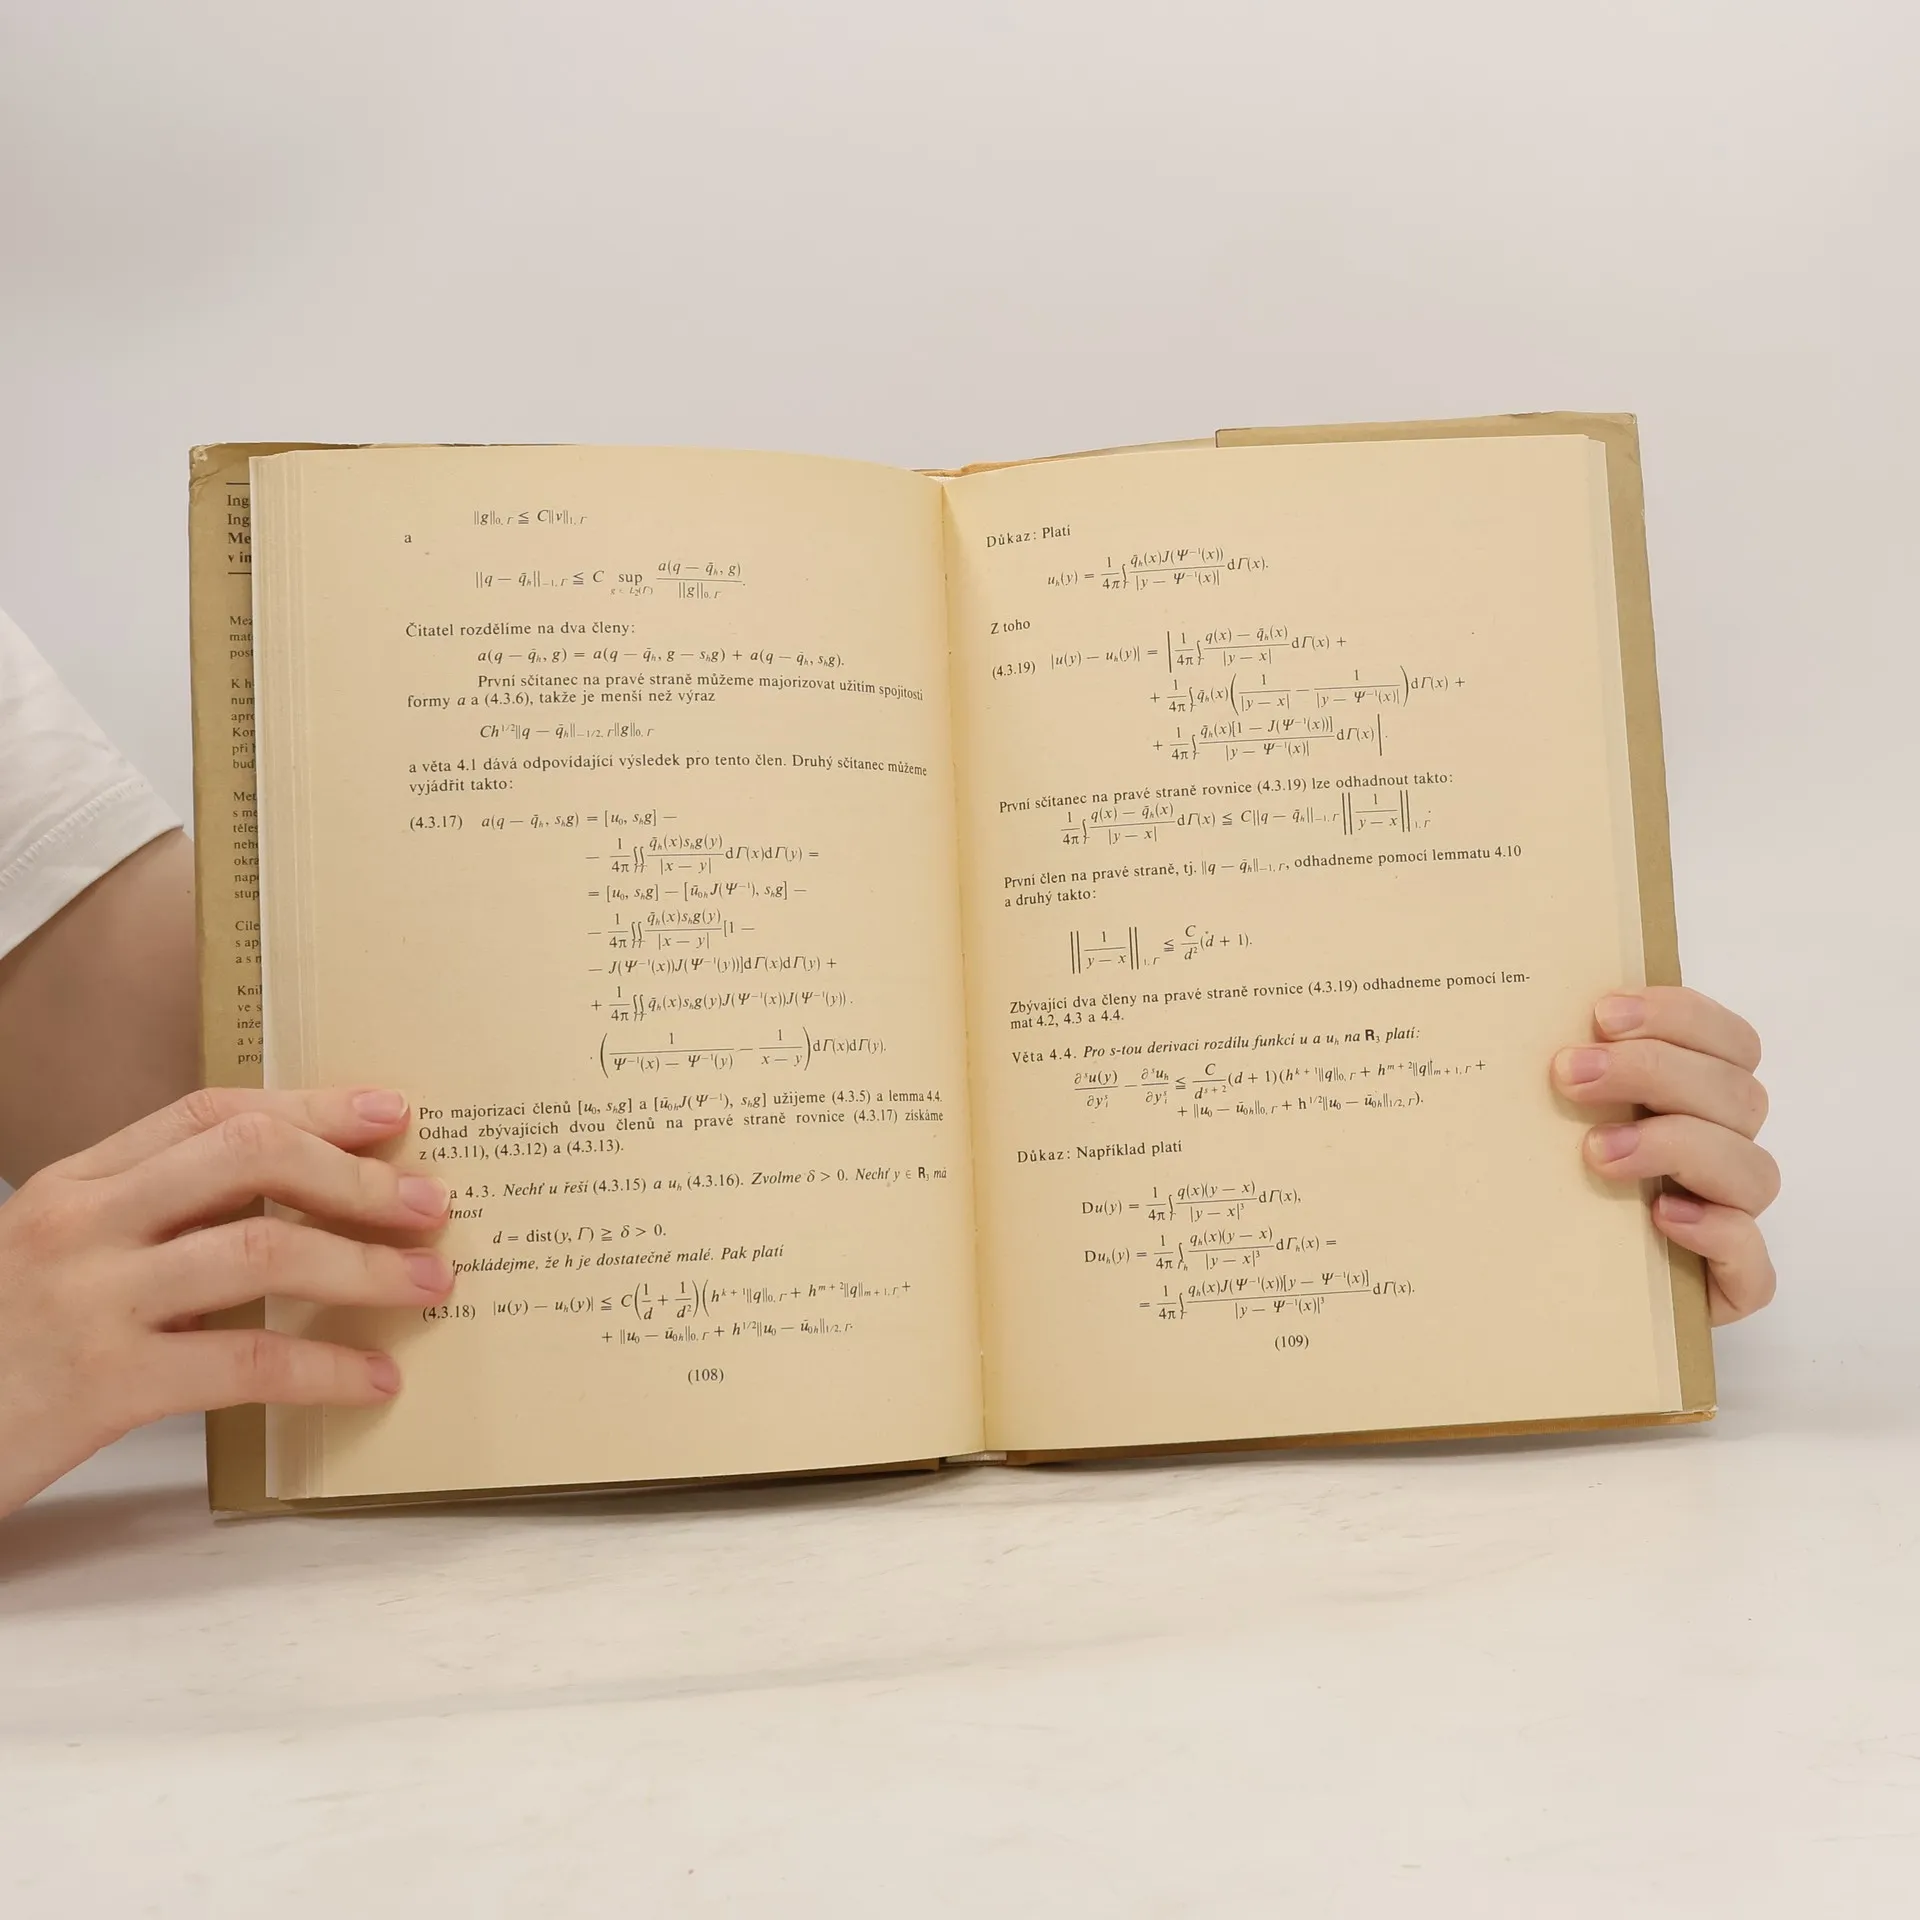 Ing
Ing
Me
v in
Mez
mat
post
K h
num
apro
Kor
při
bud
Met
s me
těles
neh
okra
nap
stup
Cíle
s ap
a s n
Knih
ve s
inže
a v a
proj
‖g‖₀,Γ ≦ C‖v‖₁,Γ
a
‖q − q̄ₕ‖₋₁,Γ ≦ C sup_{g ∈ L₂(Γ)} a(q − q̄ₕ, g) / ‖g‖₀,Γ.
Čitatel rozdělíme na dva členy:
a(q − q̄ₕ, g) = a(q − q̄ₕ, g − sₕg) + a(q − q̄ₕ, sₕg).
První sčítanec na pravé straně můžeme majorizovat užitím spojitosti
formy a a (4.3.6), takže je menší než výraz
Ch^{1/2}‖q − q̄ₕ‖_{−1/2,Γ}‖g‖₀,Γ
a věta 4.1 dává odpovídající výsledek pro tento člen. Druhý sčítanec můžeme
vyjádřit takto:
(4.3.17) a(q − q̄ₕ, sₕg) = [u₀, sₕg] −
− 1/4π ∫_Γ∫_Γ q̄ₕ(x)sₕg(y) / |x − y| dΓ(x)dΓ(y) =
= [u₀, sₕg] − [ū₀ₕJ(Ψ⁻¹), sₕg] −
− 1/4π ∫_Γ∫_Γ q̄ₕ(x)sₕg(y) / |x − y| [1 −
− J(Ψ⁻¹(x))J(Ψ⁻¹(y))]dΓ(x)dΓ(y) +
+ 1/4π ∫_Γ∫_Γ q̄ₕ(x)sₕg(y)J(Ψ⁻¹(x))J(Ψ⁻¹(y)) .
. (1 / Ψ⁻¹(x) − Ψ⁻¹(y) − 1 / x − y)dΓ(x)dΓ(y).
Pro majorizaci členů [u₀, sₕg] a [ū₀ₕJ(Ψ⁻¹), sₕg] užijeme (4.3.5) a lemma 4.4.
Odhad zbývajících dvou členů na pravé straně rovnice (4.3.17) získáme
z (4.3.11), (4.3.12) a (4.3.13).
a 4.3. Nechť u řeší (4.3.15) a uₕ (4.3.16). Zvolme δ > 0. Nechť y ∈ R₃ má
tnost
d = dist(y, Γ) ≧ δ > 0.
pokládejme, že h je dostatečně malé. Pak platí
(4.3.18) |u(y) − uₕ(y)| ≦ C(1/d + 1/d²)(h^{k+1}‖q‖₀,Γ + h^{m+2}‖q‖_{m+1,Γ} +
+ ‖u₀ − ū₀ₕ‖₀,Γ + h^{1/2}‖u₀ − ū₀ₕ‖_{1/2,Γ}.
(108)
Důkaz: Platí
uₕ(y) = 1/4π ∫_Γ q̄ₕ(x)J(Ψ⁻¹(x)) / |y − Ψ⁻¹(x)| dΓ(x).
Z toho
(4.3.19) |u(y) − uₕ(y)| = | 1/4π ∫_Γ q(x) − q̄ₕ(x) / |y − x| dΓ(x) +
+ 1/4π ∫_Γ q̄ₕ(x)(1 / |y − x| − 1 / |y − Ψ⁻¹(x)|)dΓ(x) +
+ 1/4π ∫_Γ q̄ₕ(x)[1 − J(Ψ⁻¹(x))] / |y − Ψ⁻¹(x)| dΓ(x) |.
První sčítanec na pravé straně rovnice (4.3.19) lze odhadnout takto:
1/4π ∫_Γ q(x) − q̄ₕ(x) / |y − x| dΓ(x) ≦ C‖q − q̄ₕ‖₋₁,Γ ‖1 / y − x‖₁,Γ.
První člen na pravé straně, tj. ‖q − q̄ₕ‖₋₁,Γ, odhadneme pomocí lemmatu 4.10
a druhý takto:
‖1 / y − x‖₁,Γ ≦ C/d² (d + 1).
Zbývající dva členy na pravé straně rovnice (4.3.19) odhadneme pomocí lem-
mat 4.2, 4.3 a 4.4.
Věta 4.4. Pro s-tou derivaci rozdílu funkcí u a uₕ na R₃ platí:
∂ˢu(y)/∂yᵢˢ − ∂ˢuₕ/∂yᵢˢ ≦ C/d^{s+2} (d + 1)(h^{k+1}‖q‖₀,Γ + h^{m+2}‖q‖_{m+1,Γ} +
+ ‖u₀ − ū₀ₕ‖₀,Γ + h^{1/2}‖u₀ − ū₀ₕ‖_{1/2,Γ}).
Důkaz: Například platí
Du(y) = 1/4π ∫_Γ q(x)(y − x) / |y − x|³ dΓ(x),
Duₕ(y) = 1/4π ∫_Γₕ qₕ(x)(y − x) / |y − x|³ dΓₕ(x) =
= 1/4π ∫_Γ qₕ(x)J(Ψ⁻¹(x))[y − Ψ⁻¹(x)] / |y − Ψ⁻¹(x)|³ dΓ(x).
(109)